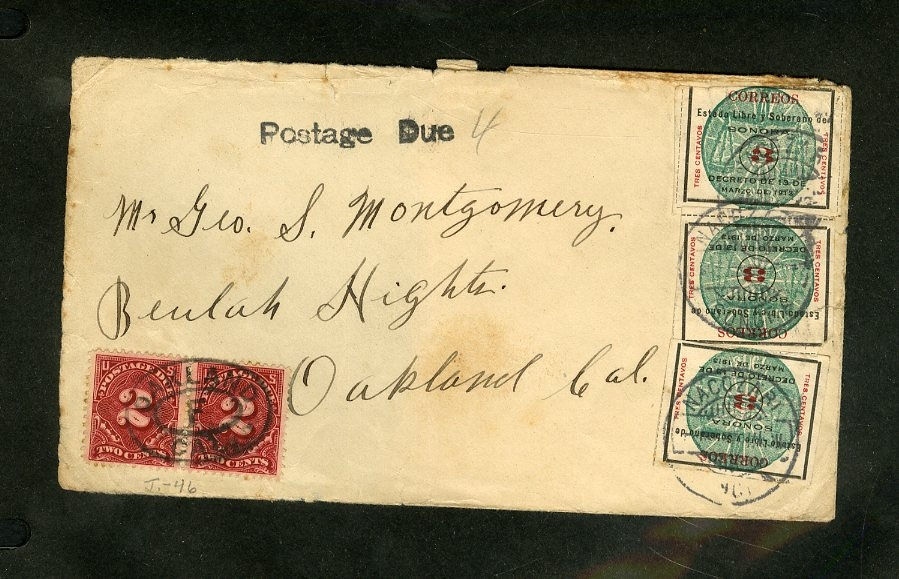 Postage Due 4
Mr Geo. S. Montgomery.
Beulah Hights.
Oakland Cal.
CORREOS
Estado Libre y Soberano de
SONORA
TRES CENTAVOS
3
TRES CENTAVOS
DECRETO DE 13 DE
MARZO DE 1913
NACOZARI
CORREOS
Estado Libre y Soberano de
SONORA
TRES CENTAVOS
3
TRES CENTAVOS
DECRETO DE 13 DE
MARZO DE 1913
CORREOS
Estado Libre y Soberano de
SONORA
TRES CENTAVOS
3
TRES CENTAVOS
DECRETO DE 13 DE
MARZO DE 1913
NACOZARI
U S
POSTAGE DUE
2
TWO CENTS
2
TWO CENTS
J-46